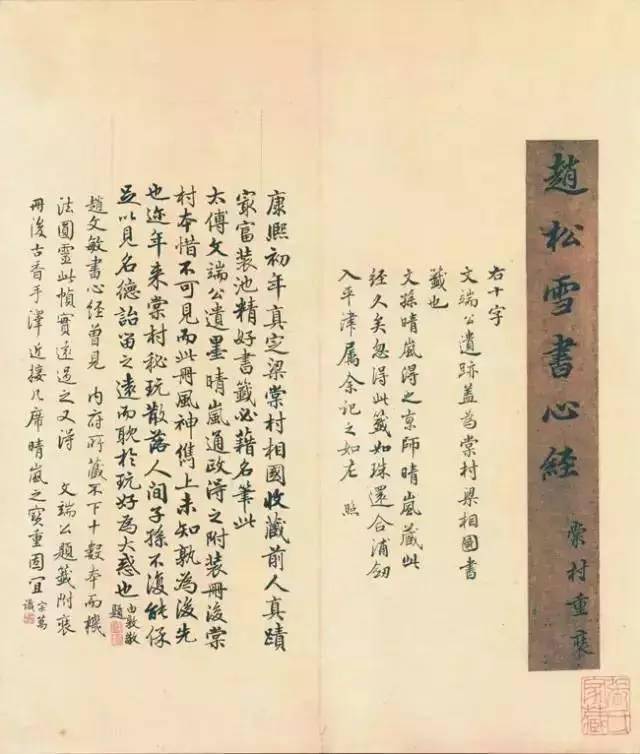 趙松雪書心經
棠村重裝
右十字
文端公遺跡蓋為棠村梁相國書
籤也
文孫晴嵐得之京師晴嵐藏此
經久矣忽得此籤如珠還合浦劍
入平津屬余記之如左 照
康熙初年真定梁棠村相國收藏前人真蹟
最富装池精好書籤必藉名筆此
太傅文端公遺墨晴嵐通政得之附装冊後棠
村本惜不可見而此冊風神儁上未知孰為後先
也近年来棠村秘玩散落人間子孫不復能保
足以見名德詒留之遠而耽於玩好為大惑也 由敦敬
題
趙文敏書心經曾見 內府所藏不下十數本而機
法圓靈此幀實遠過之又得 文端公題籤附裝
冊後古香手澤近接几席晴嵐之寶重固宜 宗萬
識
張氏
家藏